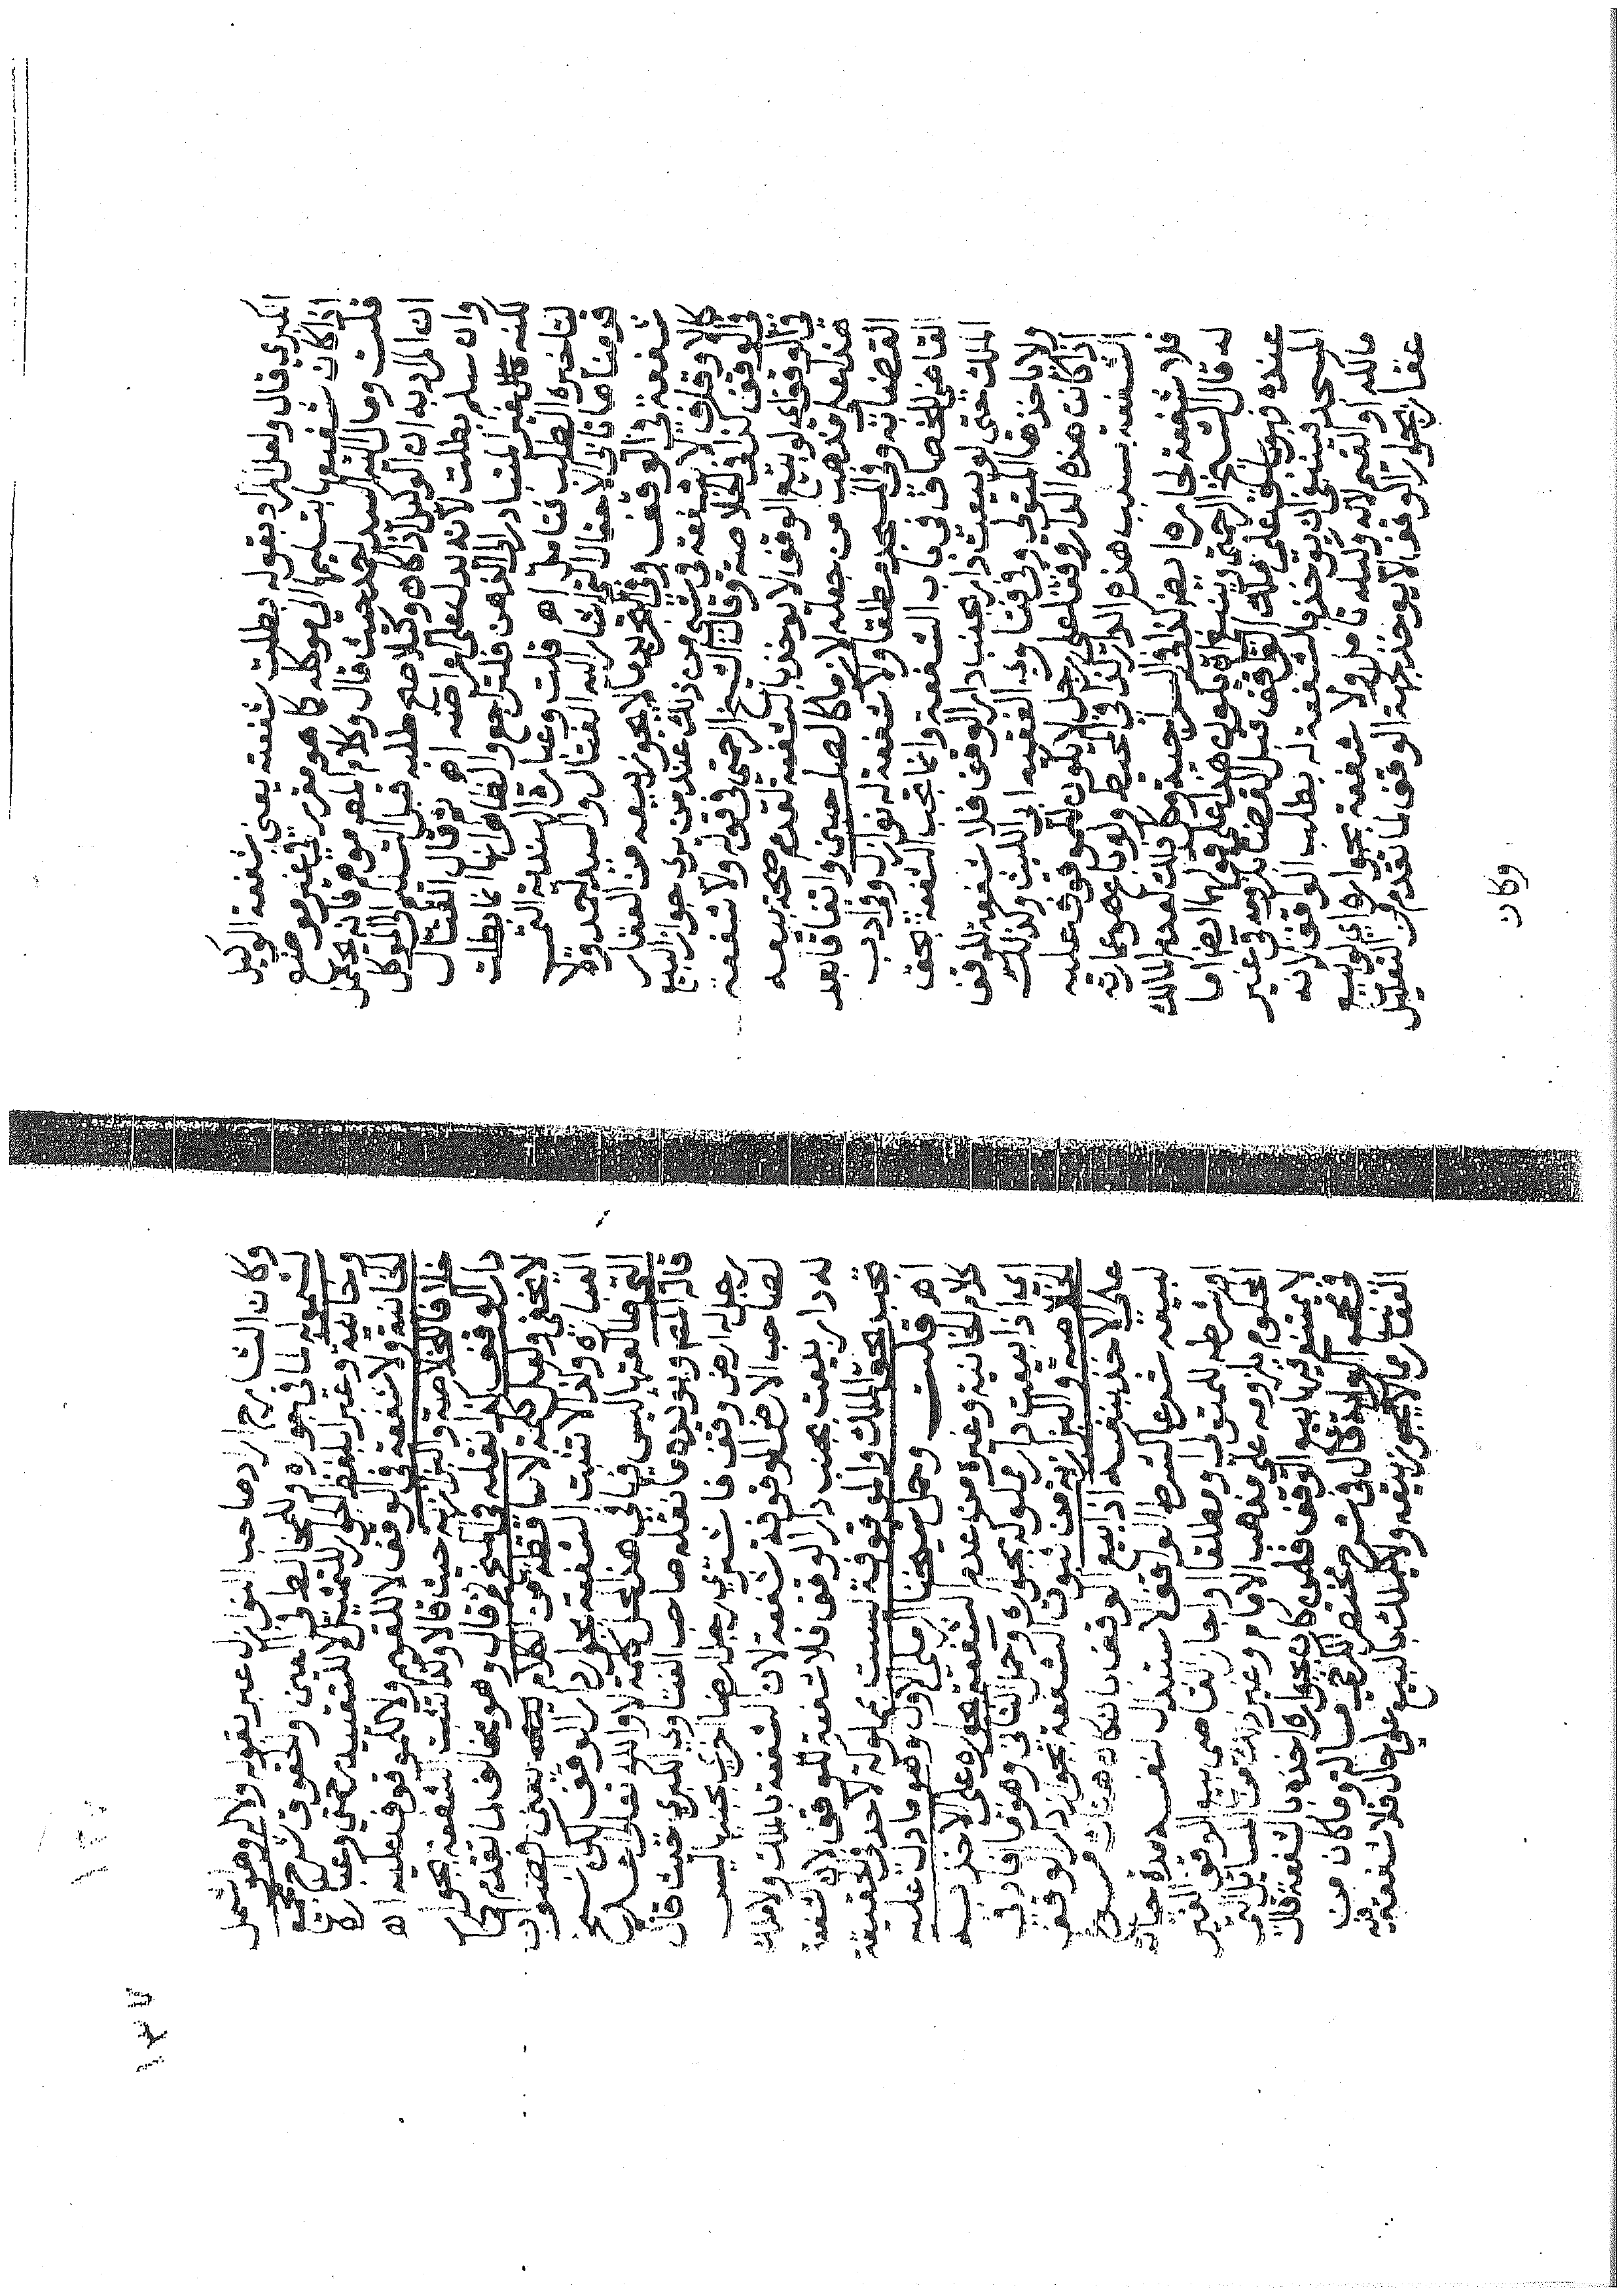 الكبرى قال ولعل المراد بقوله بطلت شفعته يعني شفعة الوكيل
اذا كان شفيعها بتسليمها الى موكله كما هو مقرر في غير موضع
قلت ومال اليه السيد احمد حيث قال وكلام المص موهم فانه يحتمل
ان المراد به ان الوكيل اذا كان وكيلا صح طلبه قبل التسليم الى الموكل
وان سلم بطلت لانه يدل على اعراضه اهـ ثم قال القتال
لكنه غير المتبادر الى الذهن فلتراجع والظاهر انها انما بطلت
لتاخيره الطلب فتامل اهـ قلت وعبارة الهندية التي
قدمناها الاحتمال الذي اشار اليه القتال والسيد احمد ولا
شفعة في الوقف وفي التجريد ما لا يجوز بيعه من العقار
كالاوقاف لا شفعة في شي من ذلك عند من يرى جواز البيع
في الوقف كذا في الخلاصة وقال الشيخ الرحمتي في قوله ولا شفعة
في الوقف اي لو بيع الوقف لا يوخذ بالشفعة لعدم صحة بيعه
هذا على مذهب من جعله لازما كالصاحبين واتفاقا بعد
القضا به وفي المسجد مطلقا ولا شفعة له نوازل وفي ادب
القاضي للخصاف في باب الشفعة وانما تجب الشفعة بحق
الملك حتى لو بيعت دار بجنب دار الوقف فلا شفعة للوقف
ولا ياخذها المتولي وفي فتاوى الفقيه ابي الليث وكذلك
اذا كانت هذه الدار وقفا على رجل لا يكون للموقوف عليه
الشفعة بسبب هذه الدار كذا في المحيط ولو باع هو عمارته
فلا شفعة لجاره ايضا كذا في السراجية وكل ذلك لعدم المالك
له قال الشيخ الرحمتي وينبغي ان يكون هذا على قولهما ايضا اما
عنده فهو باق على ملك الواقف قبل القضا بلزومه في غير
المسجد فينبغي ان يوخذ بالشفعة له بطلب الواقف لانه
مالكه او القيم لانه وكيله تامل ولا شفعة بجواره اي لو بيع
عقار بجوار الوقف لا يوخذ جهة الوقف لما تقدم من التعليل
وكان
وكان الشارح اراد صاحب النوازل عبر بقوله ولا له وهو يشمل
لشموله ما في جواره وللمخالط في العين والحقوق شرح مجمع
وخانية وعبر بلفظ الجوار للتمثيل لا للتقييد رحمتي وعبارة
الخانية ولا شفعة في الوقف لا للقيم ولا للموقوف عليه اهـ
خلافا للخلاصة والبزازية حيث قالا وكذا تثبت الشفعة بجوار
دار الوقف كذا نقله في المنح ثم قال وهو مخالف لما تقدم كما
لا يخفى ولعل كلمة لا ساقطة من الكلام يعني فصواب
العبارة وكذا لا تثبت الشفعة بجوار دار الوقف لكن نسخ
التي طالعتها ليس فيها في هذا المحل كلمة لا والله تعالى اعلم
قاله المص ويويده ما نقله صاحب الفتاوى الكبرى حيث قال
رجل له ارض وقف فاشترى رجل ارضا اخرى بجنبها ليس
لصاحب الارض الموقوفة شفعة لان الشفعة بالملك ولا ملك
له دار بيعت بجنب دار الوقف فلا شفعة للوقف لان الشفعة
تجب بحق الملك والموقوفة ليست مملوكة لاحد في الحقيقة
اهـ قلت وحمل شيخنا الرملي الاول وهو ما دل عليه
كلام الخانية وغيره من عدم الشفعة بجواره على الاخذ به
اي اذا بيعت دار مملوكة بجواره وحمل الثاني وهو ما افاده في
الخلاصة والبزازية من ثبوت الشفعة بجوار دار الوقف
على الاخذ بنفسه اذا بيع الوقف بان كان هناك مسوغ
لبيعه شرعا كشرط الواقف الاستبدال لنفسه مدة حياته
او شرطه للمتولي او مطلقا واجاز القاضي بيع الوقف الغير
المحكوم بلزومه على مذهب الامام وغير ذلك من المسايل التي
لا يمتنع فيها بيع الوقف فلمن كان بجواره اخذه بالشفعة قال
في شرح مختصر الكرخي مسالة وما كان من
العقار لا يجوز بيعه ولا يملك بالبيع على حال فلا شفعة فيه
١٣٧